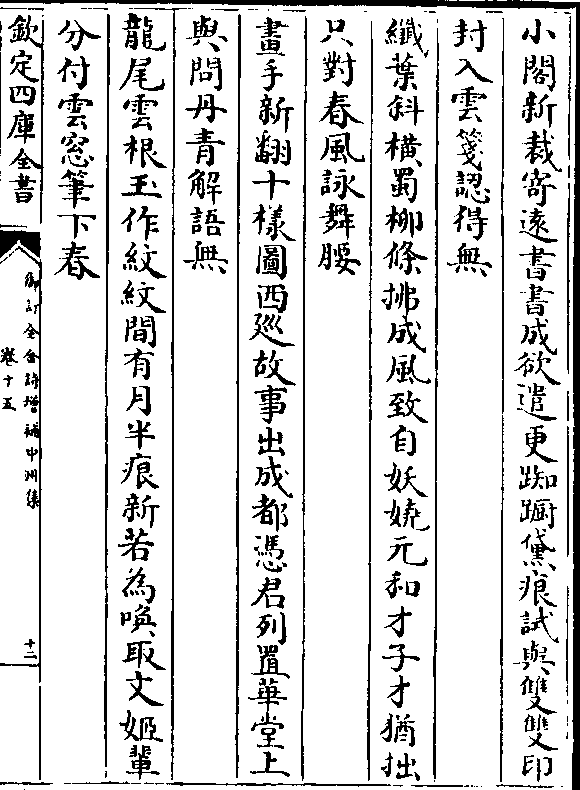 小閣新裁寄遠書書成欲遣更踟蹰黛痕試與雙雙印
封入雲箋認得無
纖葉斜橫蜀柳條拂成風致自妖嬈元和才子才猶拙
只對春風詠舞腰
畫手新翻十樣圖西廵故事出成都憑君列置華堂上
與問丹青解語無
龍尾雲根玉作紋紋間有月半痕新若為喚取文姬輩
分付雲窓筆下春
欽定四庫全書
御訂全金詩增補中州集
卷十五
十二